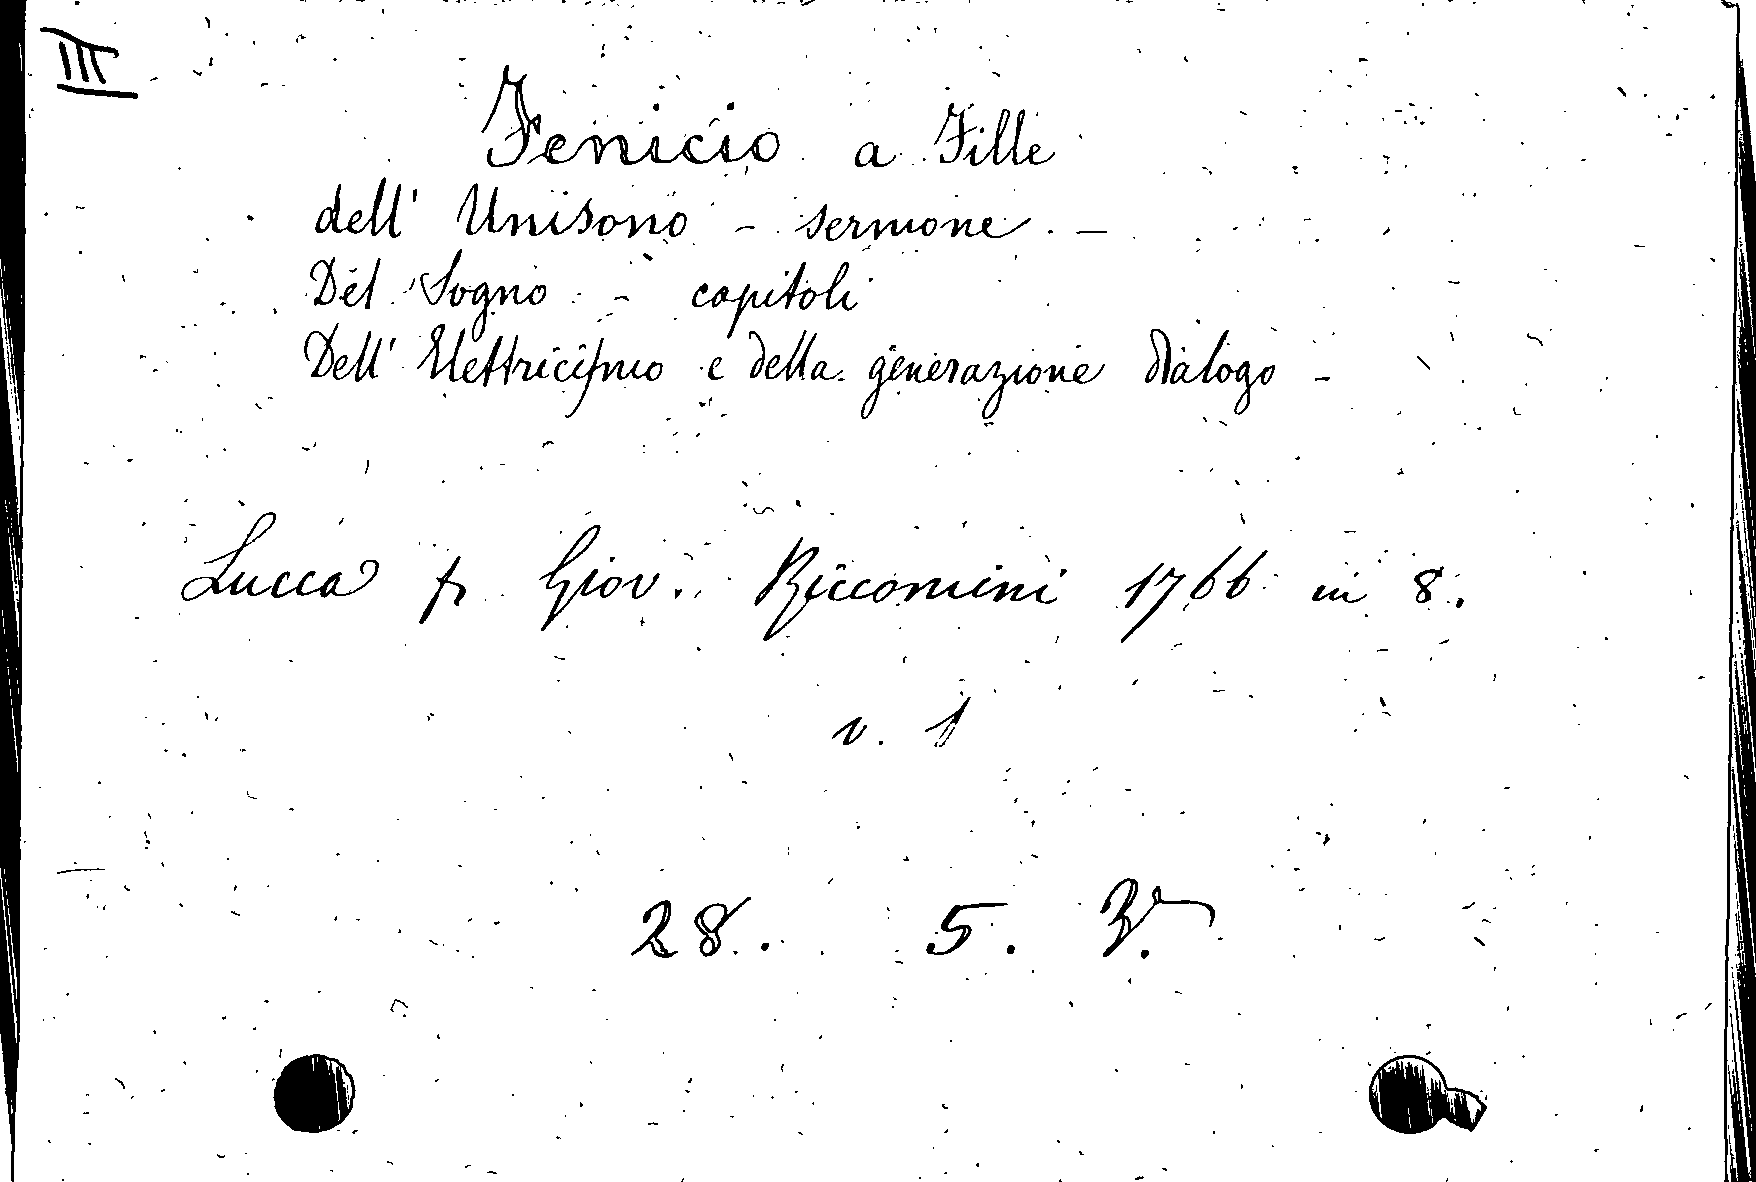 III
Fenicio a Fille
dell' Unisono - sermone -
Del Sogno - capitoli
Dell' Elettricismo e della generazione dialogo -
Lucca p. Giov. Riccomini 1766 in 8.
v. 1
28. 5. 3.